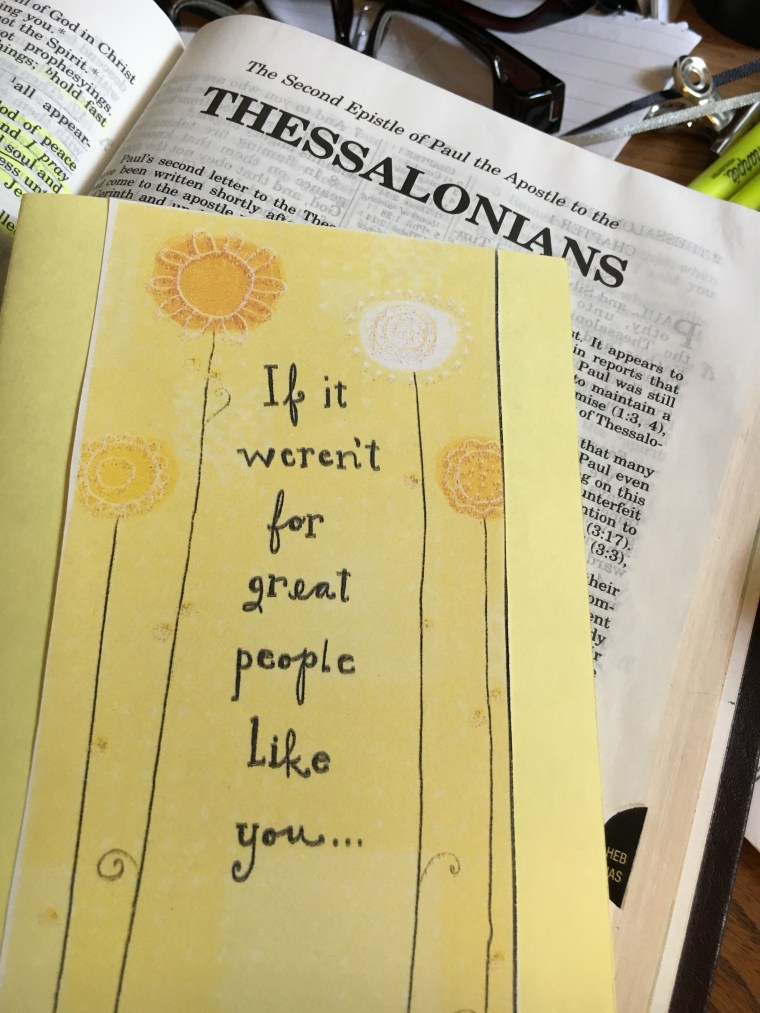 ll of God in Christ
ing you.*
ot the Spirit.*
ot prophesyings
ings; hold fast
all appear-
od of peace
nd I pray
soul and
ess un
Je
The Second Epistle of Paul the Apostle to the
THESSALONIANS
Paul's second letter to the Thes
been written shortly aft
come to the apostle
orinth and
t. It appears to
in reports that
Paul was still
to maintain a
mise (1:3, 4),
of Thessalo-
that many
Paul even
g on this
unterfeit
ntion to
(3:17).
(3:3),
heir
om-
ent
ly
r
If it
weren't
for
great
people
Like
you...
HEB
JAS